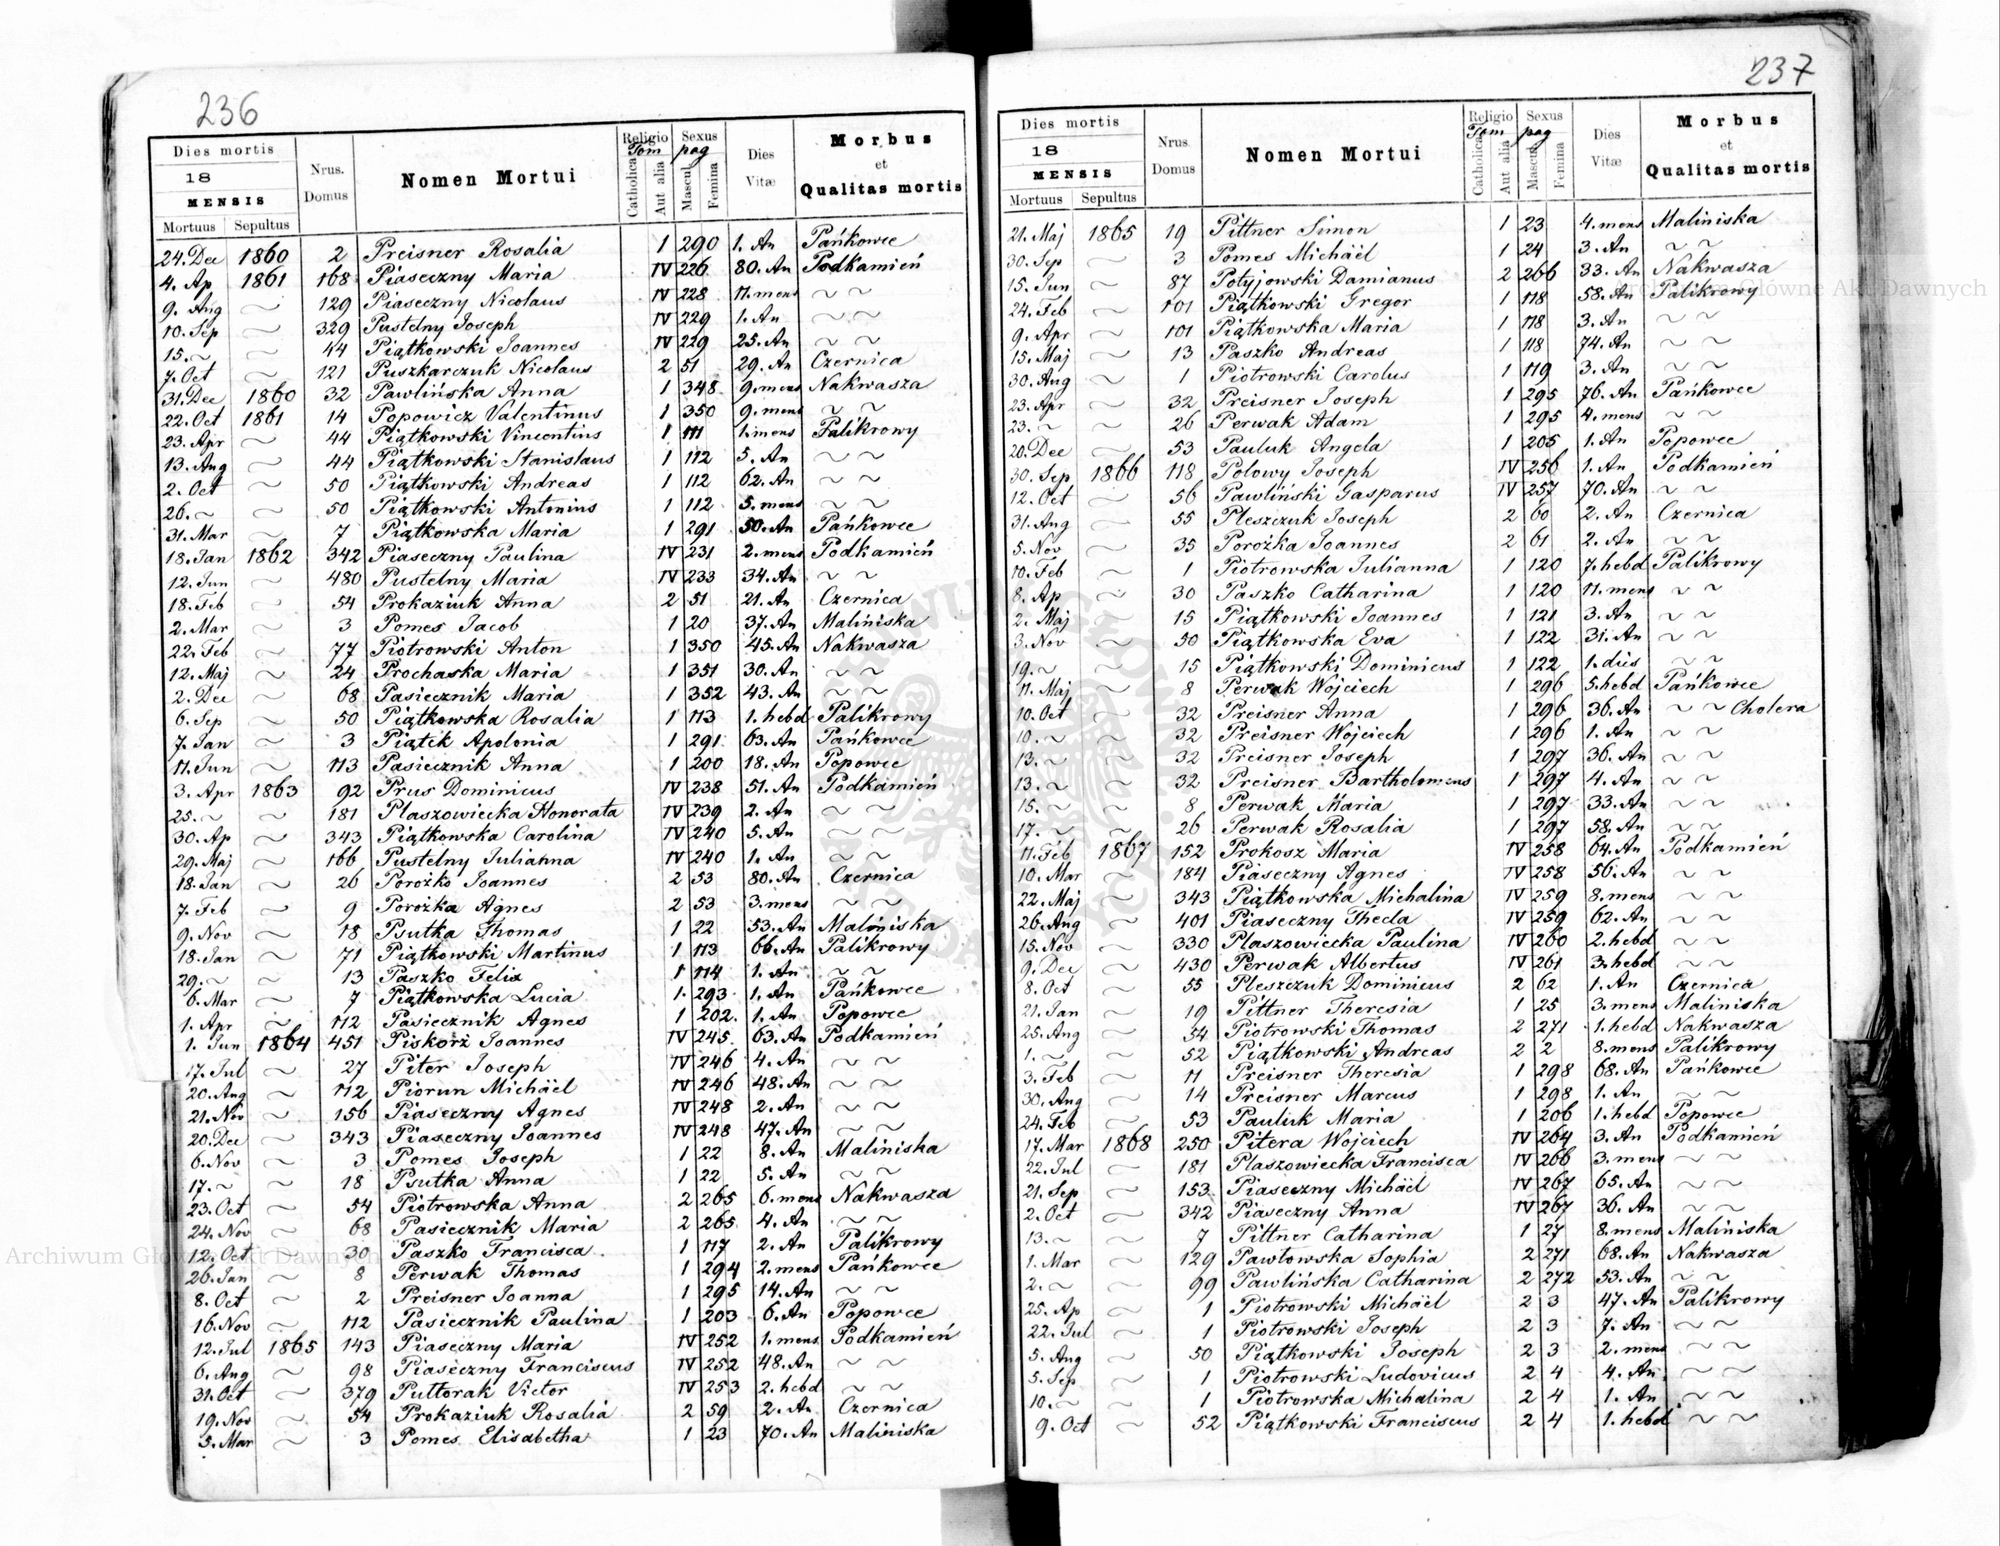 236
Dies mortis
18
MENSIS
Mortuus Sepultus
Nrus. Domus
Nomen Mortui
Religio
Tom
Catholica Aut alia
Sexus
pag
Mascul Femina
Dies Vitæ
Morbus
et
Qualitas mortis
24. Dec 1860 2 Preisner Rosalia 1 290 1. An Pańkowce
4. Ap 1861 168 Piaseczny Maria IV 226 80. An Podkamień
9. Aug ~ 129 Piaseczny Nicolaus IV 228 11. mens ~ ~
10. Sep ~ 329 Pustelny Joseph IV 229 1. An ~ ~
15. ~ ~ 44 Piątkowski Joannes IV 229 25. An ~ ~
7. Oct ~ 121 Puszkarczuk Nicolaus 2 51 29. An Czernica
31. Dec 1860 32 Pawlińska Anna 1 348 9. mens Nakwasza
22. Oct 1861 14 Popowicz Valentinus 1 350 9. mens ~ ~
23. Apr ~ 44 Piątkowski Vincentius 1 111 1. mens Palikrowy
13. Aug ~ 44 Piątkowski Stanislaus 1 112 5. An ~ ~
2. Oct ~ 50 Piątkowski Andreas 1 112 62. An ~ ~
26. ~ ~ 50 Piątkowski Antonius 1 112 5. mens ~ ~
31. Mar ~ 7 Piątkowska Maria 1 291 50. An Pańkowce
18. Jan 1862 342 Piaseczny Paulina IV 231 2. mens Podkamień
12. Jun ~ 480 Pustelny Maria IV 233 34. An ~ ~
18. Feb ~ 54 Prokaziuk Anna 2 51 21. An Czernica
2. Mar ~ 3 Pomes Jacob 1 20 37. An Maliniska
22. Feb ~ 77 Piotrowski Anton 1 350 45. An Nakwasza
12. Maj ~ 24 Prochaska Maria 1 351 30. An ~ ~
2. Dec ~ 68 Pasiecznik Maria 1 352 43. An ~ ~
6. Sep ~ 50 Piątkowska Rosalia 1 113 1. hebd Palikrowy
7. Jan ~ 3 Piątek Apolonia 1 291 63. An Pańkowce
11. Jun ~ 113 Pasiecznik Anna 1 200 18. An Popowce
3. Apr 1863 92 Prus Dominicus IV 238 51. An Podkamień
25. ~ ~ 181 Płaszowiecka Honorata IV 239 2. An ~ ~
30. Ap ~ 343 Piątkowska Carolina IV 240 5. An ~ ~
29. Maj ~ 166 Pustelny Julianna IV 240 1. An ~ ~
18. Jan ~ 26 Porożko Joannes 2 53 80. An Czernica
7. Feb ~ 9 Porożka Agnes 2 53 3. mens ~ ~
9. Nov ~ 18 Psutka Thomas 1 22 53. An Maliniska
18. Jan ~ 71 Piątkowski Martinus 1 113 66. An Palikrowy
29. ~ ~ 13 Paszko Felix 1 114 1. An ~ ~
6. Mar ~ 7 Piątkowska Lucia 1 293 1. An Pańkowce
1. Apr ~ 112 Pasiecznik Agnes 1 202 1. An Popowce
1. Jun 1864 451 Piskorż Joannes IV 245 63. An Podkamień
17. Jul ~ 27 Piter Joseph IV 246 4. An ~ ~
20. Aug ~ 112 Piorun Michäel IV 246 48. An ~ ~
21. Nov ~ 156 Piaseczny Agnes IV 248 2. An ~ ~
20. Dec ~ 343 Piaseczny Joannes IV 248 47. An ~ ~
6. Nov ~ 3 Pomes Joseph 1 22 8. An Maliniska
17. ~ ~ 18 Psutka Anna 1 22 5. An ~ ~
23. Oct ~ 54 Piotrowska Anna 2 265 6. mens Nakwasza
24. Nov ~ 68 Pasiecznik Maria 2 265 4. An ~ ~
12. Oct ~ 30 Paszko Francisca 1 117 2. An Palikrowy
26. Jan ~ 8 Perwak Thomas 1 294 2. mens Pańkowce
8. Oct ~ 2 Preisner Joanna 1 295 14. An ~ ~
16. Nov ~ 112 Pasiecznik Paulina 1 203 6. An Popowce
12. Jul 1865 143 Piaseczny Maria IV 252 1. mens Podkamień
6. Aug ~ 98 Piaseczny Franciscus IV 252 48. An ~ ~
31. Oct ~ 379 Puttorak Victor IV 253 2. hebd ~ ~
19. Nov ~ 54 Prokaziuk Rosalia 2 59 2. An Czernica
3. Mar ~ 3 Pomes Elisabetha 1 23 70. An Maliniska
237
Dies mortis
18
MENSIS
Mortuus Sepultus
Nrus. Domus
Nomen Mortui
Religio
Tom
Catholica Aut alia
Sexus
pag
Mascul Femina
Dies Vitæ
Morbus
et
Qualitas mortis
21. Maj 1865 19 Pittner Simon 1 23 4. mens Maliniska
30. Sep ~ 3 Pomes Michäel 1 24 3. An ~ ~
15. Jun ~ 87 Potyjowski Damianus 2 266 33. An Nakwasza
24. Feb ~ 101 Piątkowski Gregor 1 118 58. An Palikrowy
9. Apr ~ 101 Piątkowska Maria 1 118 3. An ~ ~
15. Maj ~ 13 Paszko Andreas 1 118 74. An ~ ~
30. Aug ~ 1 Piotrowski Carolus 1 119 3. An ~ ~
23. Apr ~ 32 Preisner Joseph 1 295 76. An Pańkowce
23. ~ ~ 26 Perwak Adam 1 295 4. mens ~ ~
20. Dec ~ 53 Pauluk Angela 1 205 1. An Popowce
30. Sep 1866 118 Polowy Joseph IV 256 1. An Podkamień
12. Oct ~ 56 Pawliński Gasparus IV 257 70. An ~ ~
31. Aug ~ 55 Pleszczuk Joseph 2 60 2. An Czernica
5. Nov ~ 35 Porożka Joannes 2 61 2. An ~ ~
10. Feb ~ 1 Piotrowska Julianna 1 120 7. hebd Palikrowy
8. Ap ~ 30 Paszko Catharina 1 120 11. mens ~ ~
2. Maj ~ 15 Piątkowski Joannes 1 121 3. An ~ ~
3. Nov ~ 50 Piątkowska Eva 1 122 31. An ~ ~
19. ~ ~ 15 Piątkowski Dominicus 1 122 1. dies ~ ~
11. Maj ~ 8 Perwak Wojciech 1 296 5. hebd Pańkowce
10. Oct ~ 32 Preisner Anna 1 296 36. An ~ ~ Cholera
10. ~ ~ 32 Preisner Wojciech 1 296 1. An ~ ~
13. ~ ~ 32 Preisner Joseph 1 297 36. An ~ ~
13. ~ ~ 32 Preisner Bartholomeus 1 297 4. An ~ ~
15. ~ ~ 8 Perwak Maria 1 297 33. An ~ ~
17. ~ ~ 26 Perwak Rosalia 1 297 58. An ~ ~
11. Feb 1867 152 Prokosz Maria IV 258 64. An Podkamień
10. Mar ~ 184 Piaseczny Agnes IV 258 56. An ~ ~
22. Maj ~ 343 Piątkowska Michalina IV 259 8. mens ~ ~
26. Aug ~ 401 Piaseczny Thecla IV 259 62. An ~ ~
15. Nov ~ 330 Płaszowiecka Paulina IV 260 2. hebd ~ ~
9. Dec ~ 430 Perwak Albertus IV 261 3. hebd ~ ~
8. Oct ~ 55 Pleszczuk Dominicus 2 62 1. An Czernica
21. Jan ~ 19 Pittner Theresia 1 25 3. mens Maliniska
25. Aug ~ 54 Piotrowski Thomas 2 271 1. hebd Nakwasza
1. ~ ~ 52 Piątkowski Andreas 2 2 8. mens Palikrowy
3. Feb ~ 11 Preisner Theresia 1 298 68. An Pańkowce
30. Aug ~ 14 Preisner Marcus 1 298 1. An ~ ~
24. Feb ~ 53 Pauluk Maria 1 206 1. hebd Popowce
17. Mar 1868 250 Pitera Wojciech IV 264 3. An Podkamień
22. Jul ~ 181 Płaszowiecka Francisca IV 266 3. mens ~ ~
21. Sep ~ 153 Piaseczny Michäel IV 267 65. An ~ ~
2. Oct ~ 342 Piaseczny Anna IV 267 36. An ~ ~
13. ~ ~ 7 Pittner Catharina 1 27 8. mens Maliniska
1. Mar ~ 129 Pawłowska Sophia 2 271 68. An Nakwasza
2. ~ ~ 99 Pawlińska Catharina 2 272 53. An ~ ~
25. Ap ~ 1 Piotrowski Michäel 2 3 47. An Palikrowy
22. Jul ~ 1 Piotrowski Joseph 2 3 7. An ~ ~
5. Aug ~ 50 Piątkowski Joseph 2 3 2. mens ~ ~
5. Sep ~ 1 Piotrowski Ludovicus 2 4 4. An ~ ~
10. ~ ~ 1 Piotrowska Michalina 2 4 1. An ~ ~
9. Oct ~ 52 Piątkowski Franciscus 2 4 1. hebd ~ ~
Archiwum Główne Akt Dawnych
Archiwum Główne Akt Dawnych